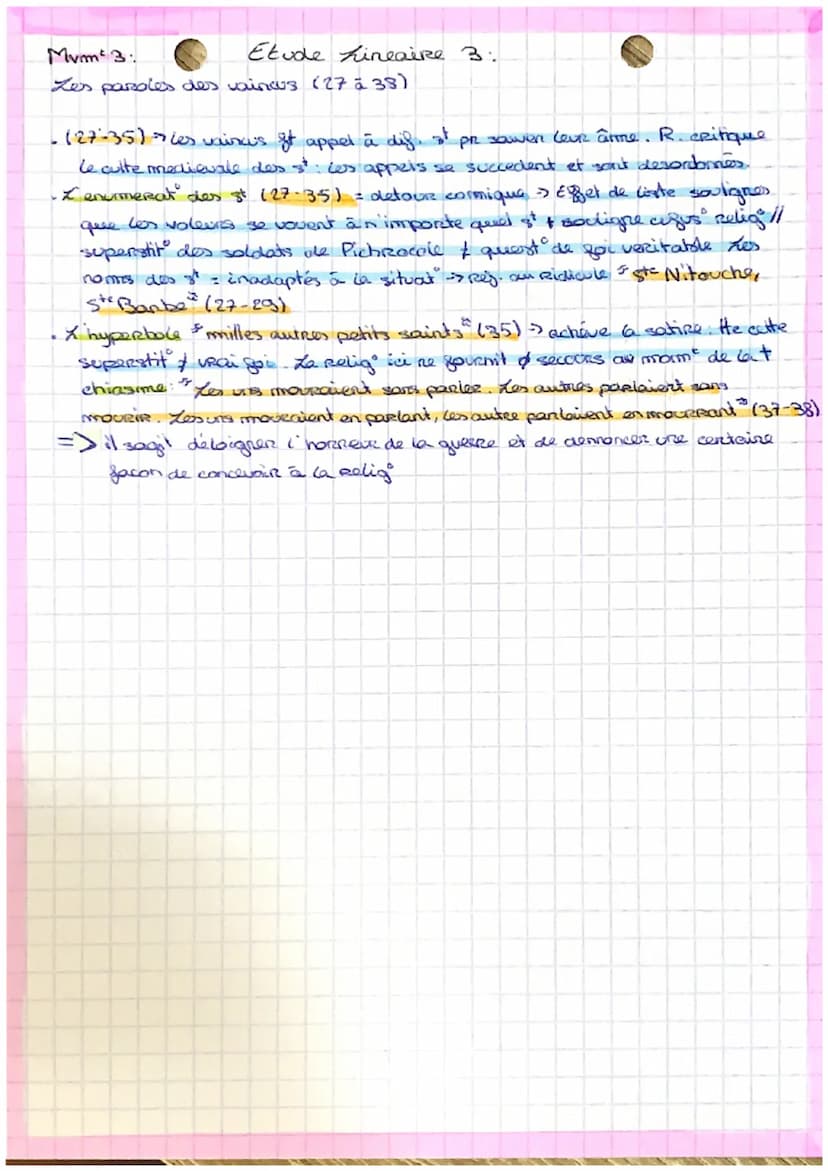 Mvmt 3: Etude Lineaire 3:
Les paroles des vaincus (27 à 38)
- (27-35) → les vaincus ft appel à dif. st pr sauver leur âme. R. critique
le culte medievale des st : les appels se succedent et sont desordonnés.
- L'enumerat° des st (27-35) = detour comique → Effet de liste soulignes
que les voleurs se vouent à n'importe quel st + souligne religi° //
superstit° des soldats de Pichrocole ≠ quest° de foi veritable Les
noms des st = inadaptés à la situat° → rég. au ridicule "Ste Nitouche,
Ste Barbe" (27-29)
• L'hyperbole "milles autres petits saints" (35) → achéve la satire. He cette
superstit° ≠ vrai foi. La religi° ici ne fournit ø secours au momt de la †
chiasme: "Les uns mouraient sans parler. Les autres parlaient sans
mourir. Les uns mouraient en parlant, les autre parlaient en mourrant" (37-38)
=> il sagit déloigner l'horreur de la guerre et de dennoncer une certaine
façon de concevoir à la religi°